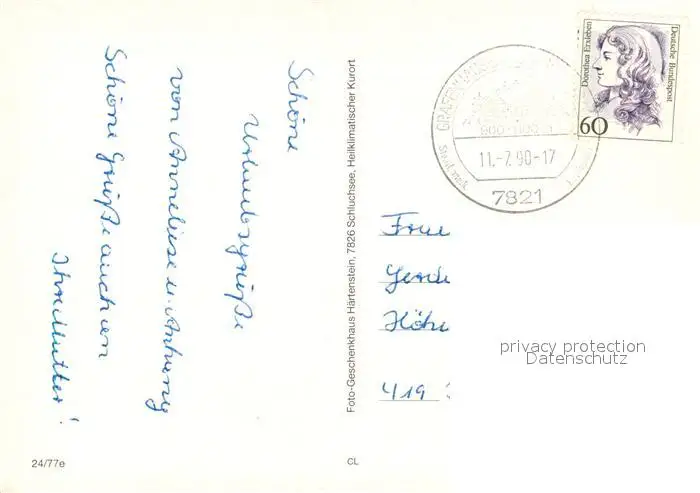 Schöne
Urlaubsgrüße
von Anneliese u. Antony
Schöne Grüße auch an
Ihre Mutter!
24/77e
CL
Foto-Geschenkhaus Härtenstein, 7826 Schluchsee, Heilklimatischer Kurort
11.-7.90-17
7821
Dorothea Erxleben
Deutsche Bundespost
60
Frau
Gerda
419
privacy protection
Datenschutz